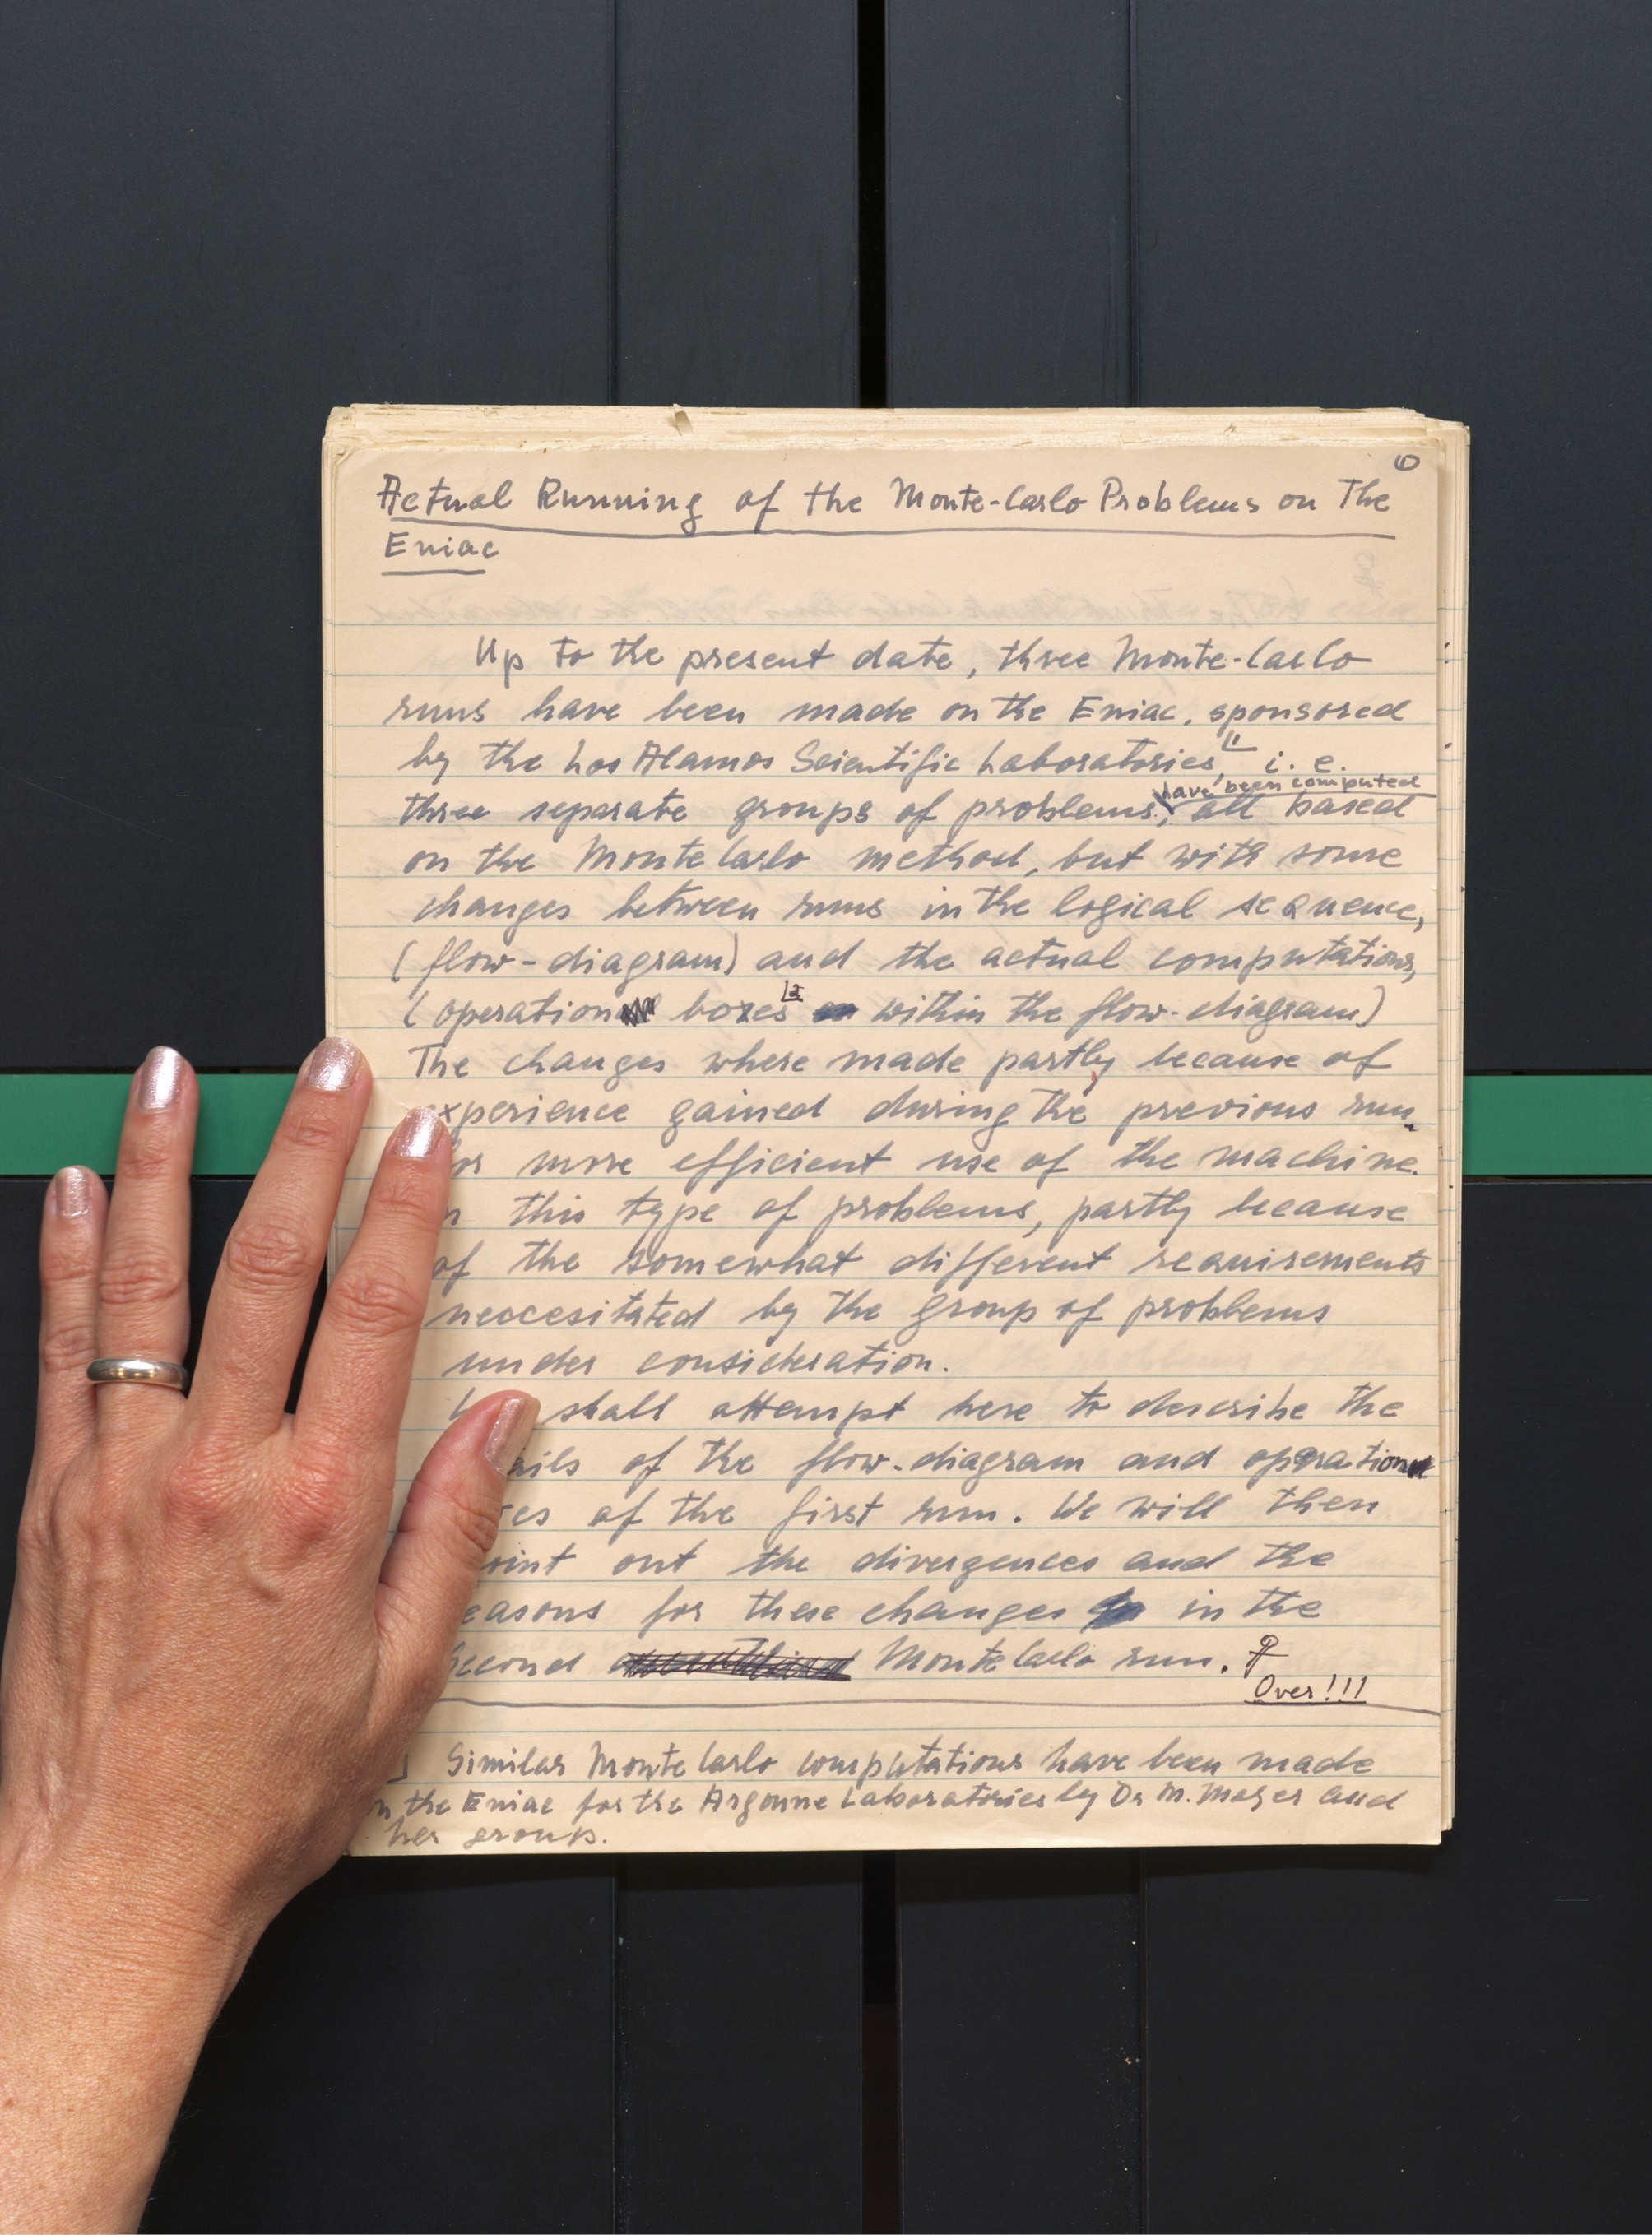 Actual Running of the Monte-Carlo Problems on The
Eniac
Up to the present date, three Monte-Carlo
runs have been made on the Eniac, sponsored
by the Los Alamos Scientific Laboratories 1 i.e.
have been computed
three separate groups of problems, all based
on the Monte Carlo method, but with some
changes between runs in the logical sequence,
(flow-diagram) and the actual computations,
(operation boxes 2 within the flow-diagram)
The changes where made partly because of
experience gained during the previous run
for more efficient use of the machine
this type of problems, partly because
of the somewhat different requirements
neccesitated by the group of problems
under consideration.
shall attempt here to describe the
ails of the flow-diagram and operation
es of the first run. We will then
oint out the divergences and the
easons for these changes in the
second Monte Carlo run.
Over!!!
Similar Monte Carlo computations have been made
on the Eniac for the Argonne Laboratories by Dr M. Mayer and
her group.